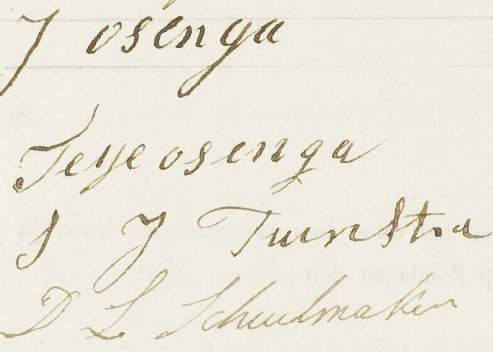 J osenga
Teye osenga
J J Tuinstra
D L Scheulmaker